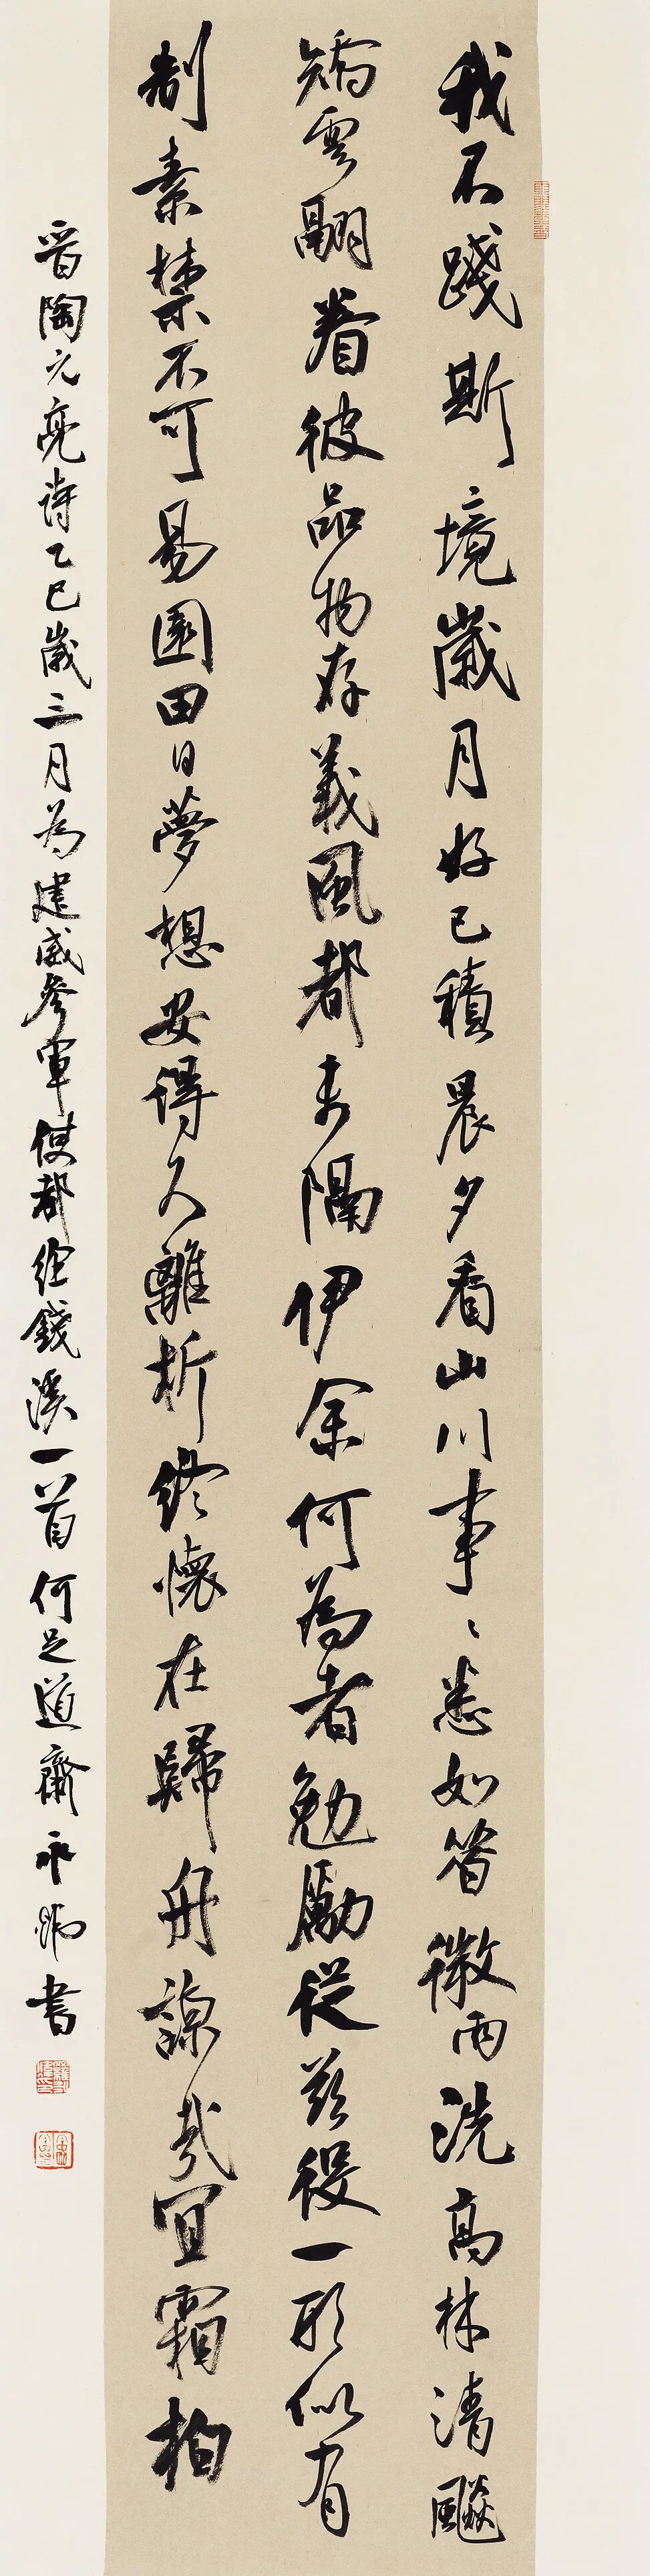 我不踐斯境歲月好已積晨夕看山川事〻悉如昔微雨洗高林清飈
矯雲翮眷彼品物存義風都未隔伊余何為者勉勵從茲役一形似有
制素襟不可易園田日夢想安得久離析終懷在歸舟諒哉宜霜柏
晉陶元亮詩乙巳歲三月為建威參軍使都經錢溪一首何足道齋永卿書